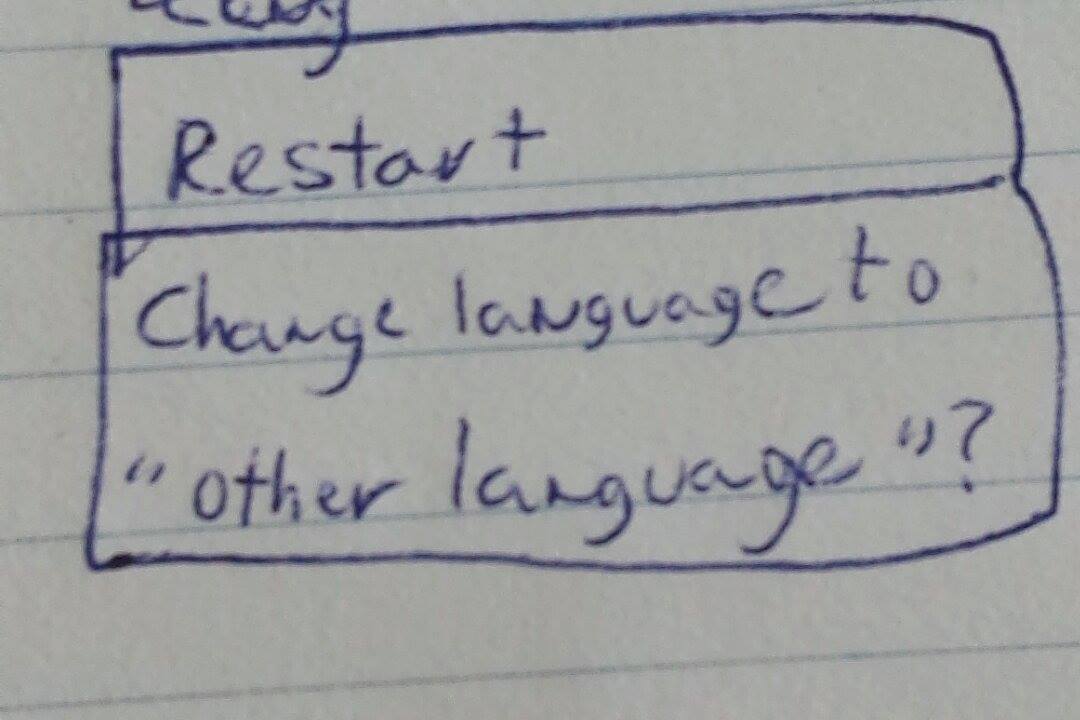 Restart
Change language to
"other language"?